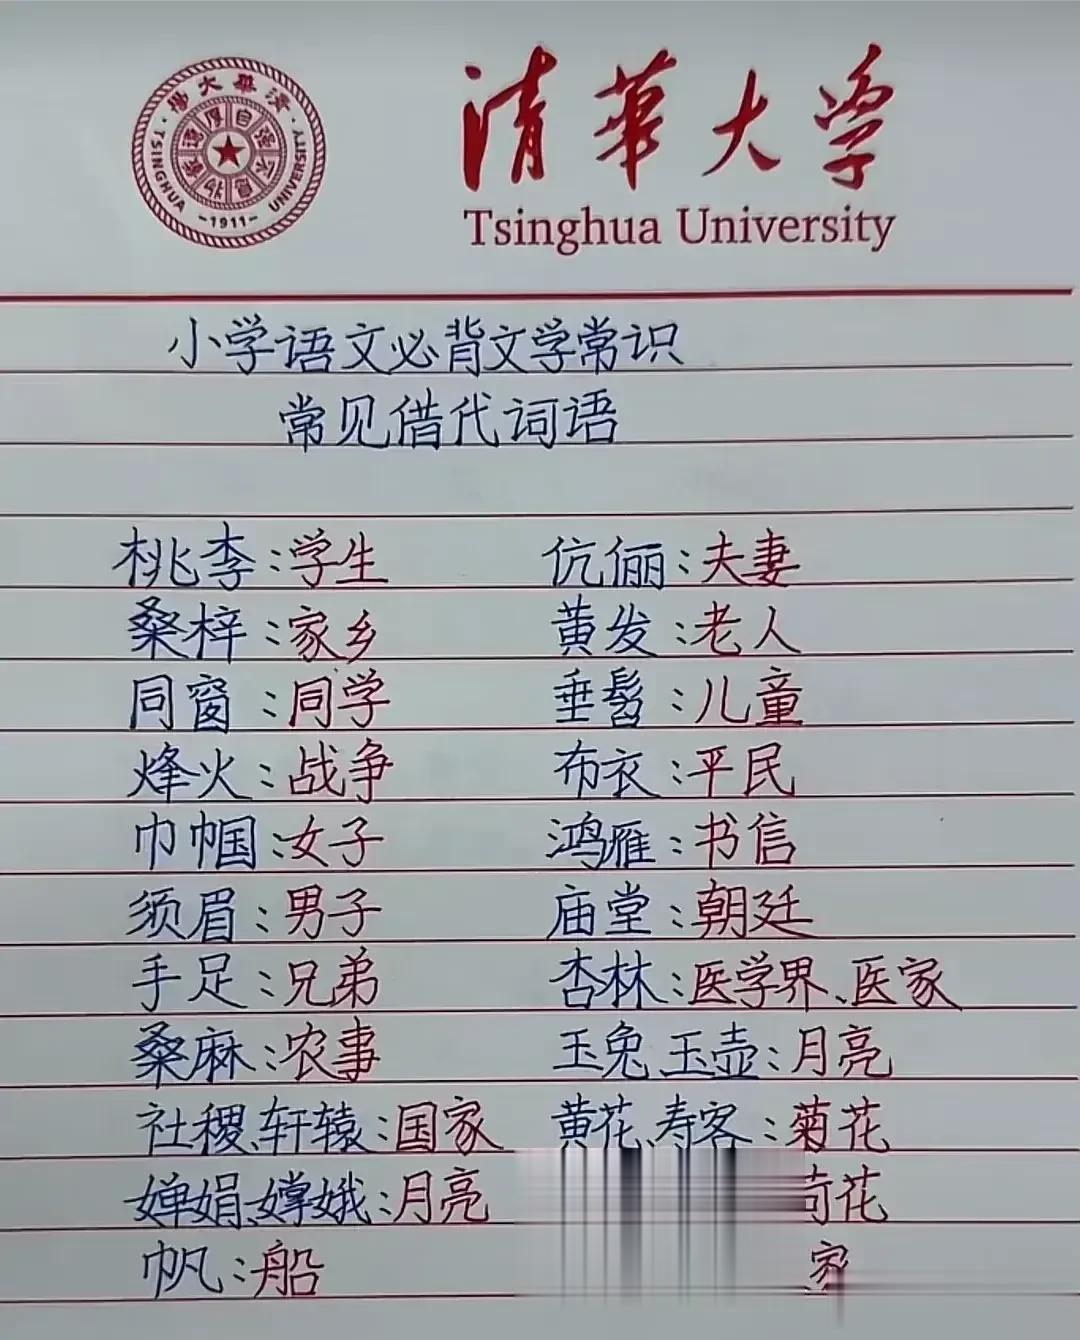 清華大学
Tsinghua University
TSINGHUA UNIVERSITY
-1911-
小学语文必背文学常识
常见借代词语
桃李:学生 伉俪:夫妻
桑梓:家乡 黄发:老人
同窗:同学 垂髫:儿童
烽火:战争 布衣:平民
巾帼:女子 鸿雁:书信
须眉:男子 庙堂:朝廷
手足:兄弟 杏林:医学界、医家
桑麻:农事 玉兔、玉壶:月亮
社稷、轩辕:国家 黄花、寿客:菊花
婵娟、嫦娥:月亮 花
帆:船 家